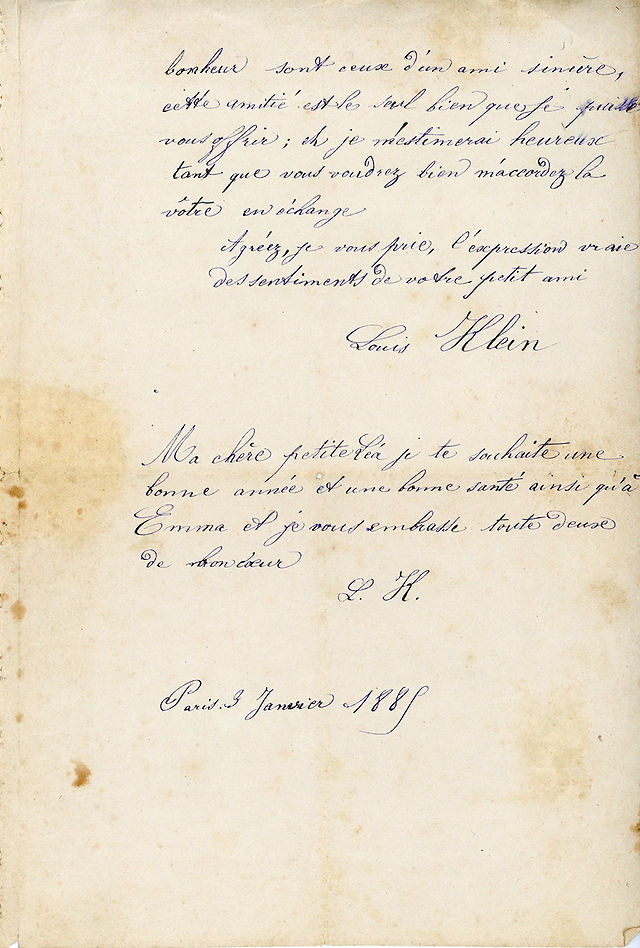 bonheur sont ceux d'un ami sincère,
cette amitié est le seul bien que je puisse
vous offrir ; et je m'estimerai heureux
tant que vous voudrez bien m'accordez la
vôtre en échange
Agréez, je vous prie, l'éxpression vraie
des sentiments de votre petit ami
Louis Klein
Ma chère petite Léa je te souhaite une
bonne année et une bonne santé ainsi qu'à
Emma et je vous embrasse toute deux
de mon cœur
L. K.
Paris. 3 Janvier 1885